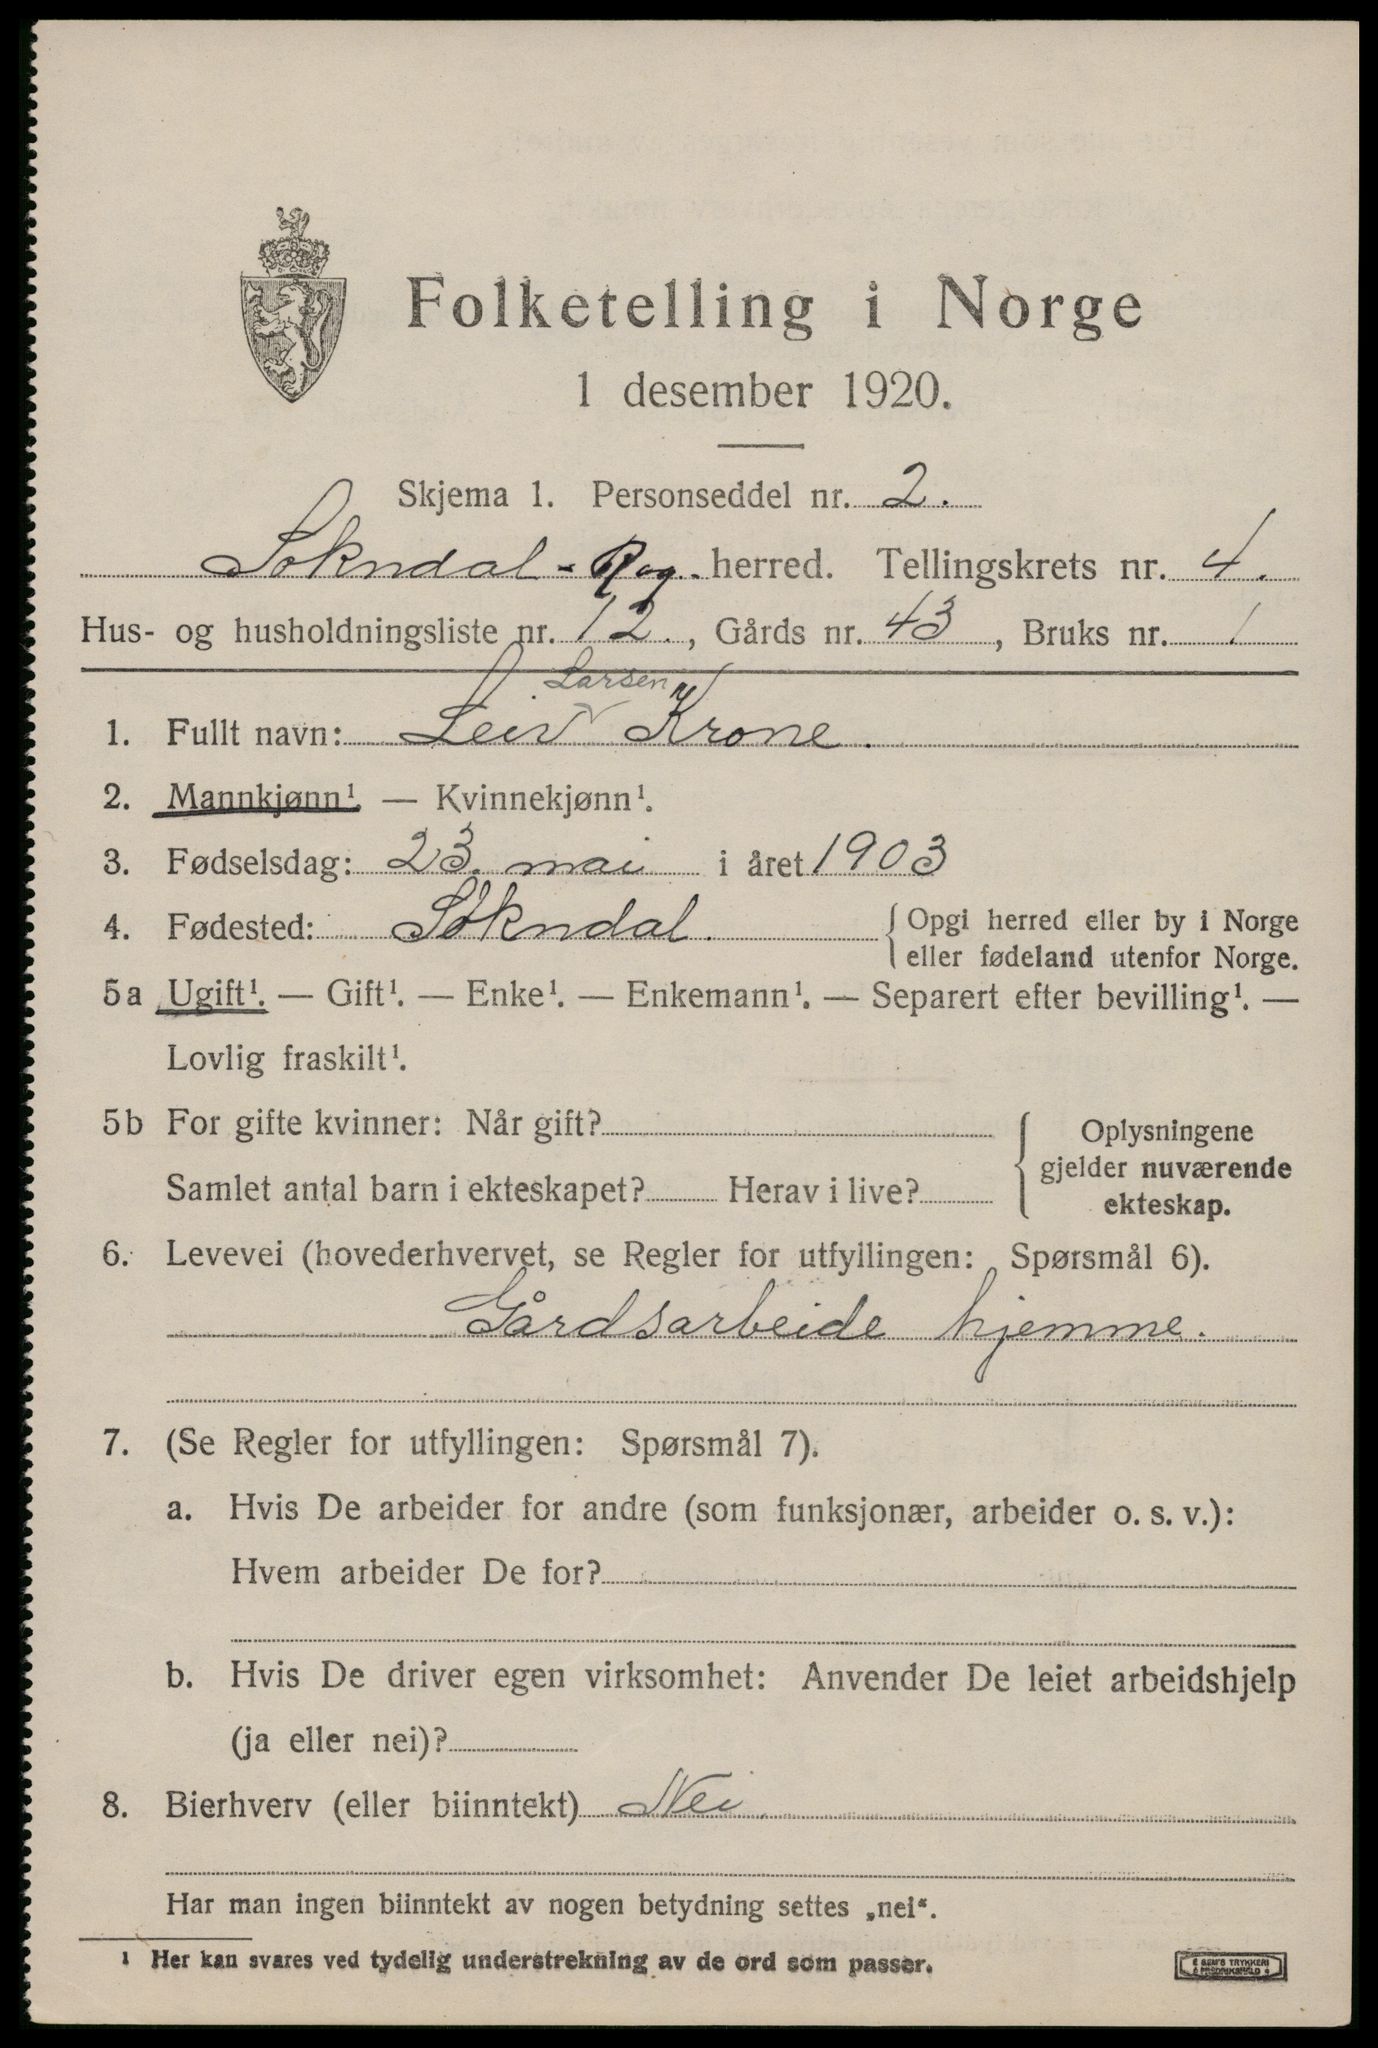 Folketelling i Norge
1 desember 1920.
Skjema 1. Personseddel nr. 2.
Sokndal - Rog. herred. Tellingskrets nr. 4.
Hus- og husholdningsliste nr. 12., Gårds nr. 43, Bruks nr. 1
Larsen
1. Fullt navn: Leiv Krone.
2. Mannkjønn¹. — Kvinnekjønn¹.
3. Fødselsdag: 23. mai i året 1903
4. Fødested: Sokndal. { Opgi herred eller by i Norge
eller fødeland utenfor Norge.
5a Ugift¹. — Gift¹. — Enke¹. — Enkemann¹. — Separert efter bevilling¹. —
Lovlig fraskilt¹.
5b For gifte kvinner: Når gift?
Samlet antal barn i ekteskapet? Herav i live?
{ Oplysningene
gjelder nuværende
ekteskap.
6. Levevei (hovederhvervet, se Regler for utfyllingen: Spørsmål 6).
Gårdsarbeide hjemme.
7. (Se Regler for utfyllingen: Spørsmål 7).
a. Hvis De arbeider for andre (som funksjonær, arbeider o. s. v.):
Hvem arbeider De for?
b. Hvis De driver egen virksomhet: Anvender De leiet arbeidshjelp
(ja eller nei)?
8. Bierhverv (eller biinntekt) Nei.
Har man ingen biinntekt av nogen betydning settes „nei“.
¹ Her kan svares ved tydelig understrekning av de ord som passer.
E SEM'S TRYKKERI
FREDRIKSHALD